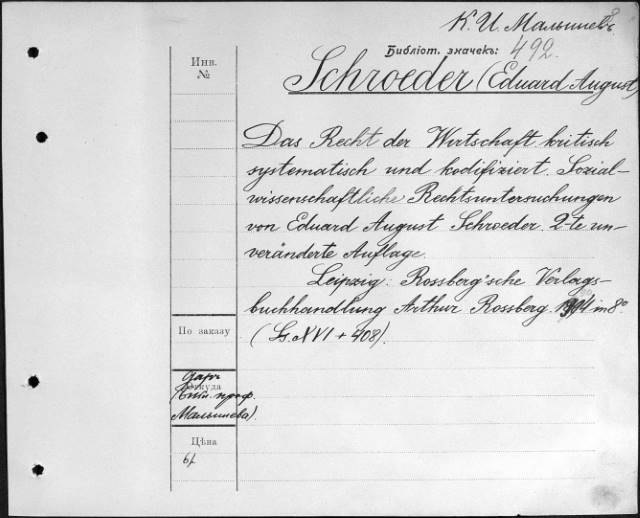 К. И. Малышевъ
Библіот. значекъ: 492.
Инв.
№
Schroeder (Eduard August)
Das Recht der Wirtschaft kritisch
systematisch und kodifiziert. Sozial-
wissenschaftliche Rechtsuntersuchungen
von Eduard August Schroeder. 2-te un-
veränderte Auflage.
Leipzig: Rossberg'sche Verlags-
buchhandlung Arthur Rossberg. in 8°
(Ss. XVI + 408).
По заказу
Даръ
Откуда
проф.
Малышева).
Цѣна